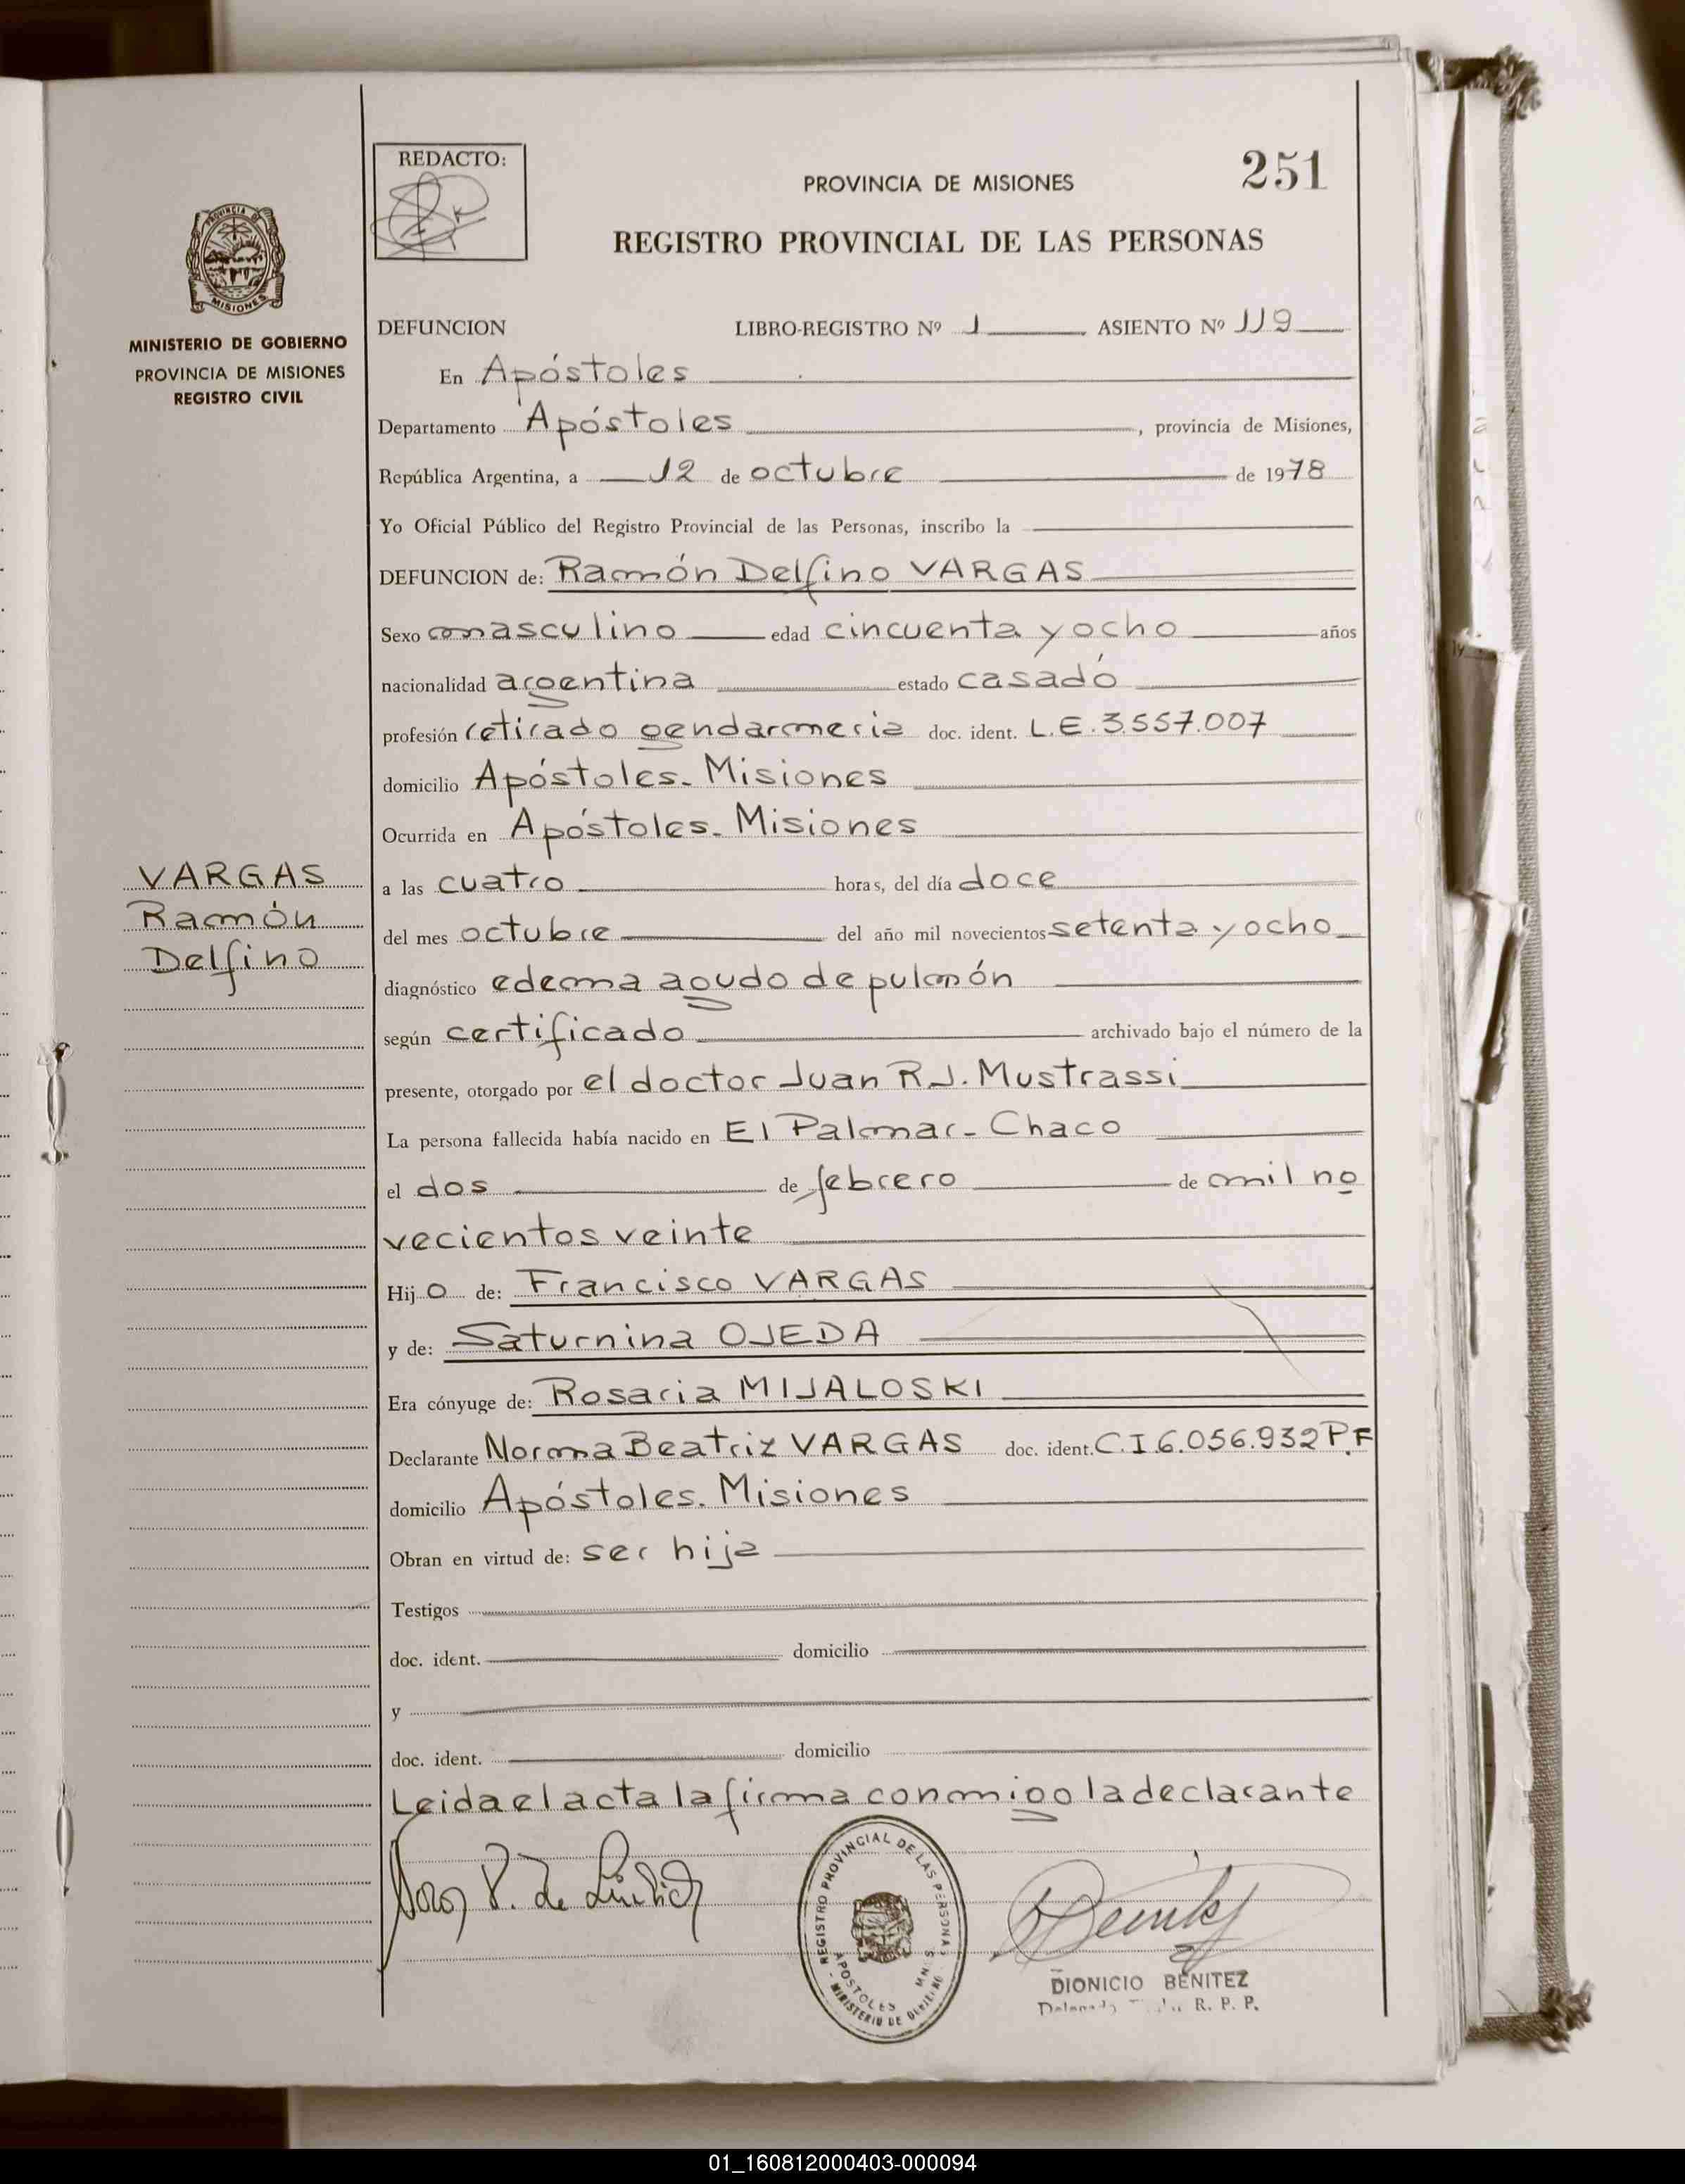 REDACTO:
251
PROVINCIA DE MISIONES
REGISTRO PROVINCIAL DE LAS PERSONAS
PROVINCIA DE
MISIONES
MINISTERIO DE GOBIERNO
PROVINCIA DE MISIONES
REGISTRO CIVIL
DEFUNCION LIBRO-REGISTRO Nº 1 ASIENTO Nº 119
En Apóstoles
Departamento Apóstoles, provincia de Misiones,
República Argentina, a 12 de octubre de 1978
Yo Oficial Público del Registro Provincial de las Personas, inscribo la
DEFUNCION de: Ramón Delfino VARGAS
Sexo masculino edad cincuenta y ocho años
nacionalidad argentina estado casado
profesión retirado gendarmeria doc. ident. L.E.3.557.007
domicilio Apóstoles. Misiones
Ocurrida en Apóstoles. Misiones
VARGAS
Ramón
Delfino
a las cuatro horas, del día doce
del mes octubre del año mil novecientos setenta y ocho
diagnóstico edema agudo de pulmón
según certificado archivado bajo el número de la
presente, otorgado por el doctor Juan R.J. Mustrassi
La persona fallecida había nacido en El Palmar - Chaco
el dos de febrero de mil no
vecientos veinte
Hijo de: Francisco VARGAS
y de: Saturnina OJEDA
Era cónyuge de: Rosaria MIJALOSKI
Declarante Norma Beatriz VARGAS doc. ident. C.I 6.056.932 P.F
domicilio Apóstoles. Misiones
Obran en virtud de: ser hija
Testigos
doc. ident. domicilio
y
doc. ident. domicilio
Leida el acta la firma conmigo la declarante
REGISTRO PROVINCIAL DE LAS PERSONAS
APOSTOLES MNES.
MINISTERIO DE GOBIERNO
DIONICIO BENITEZ
R. P. P.
01_160812000403-000094